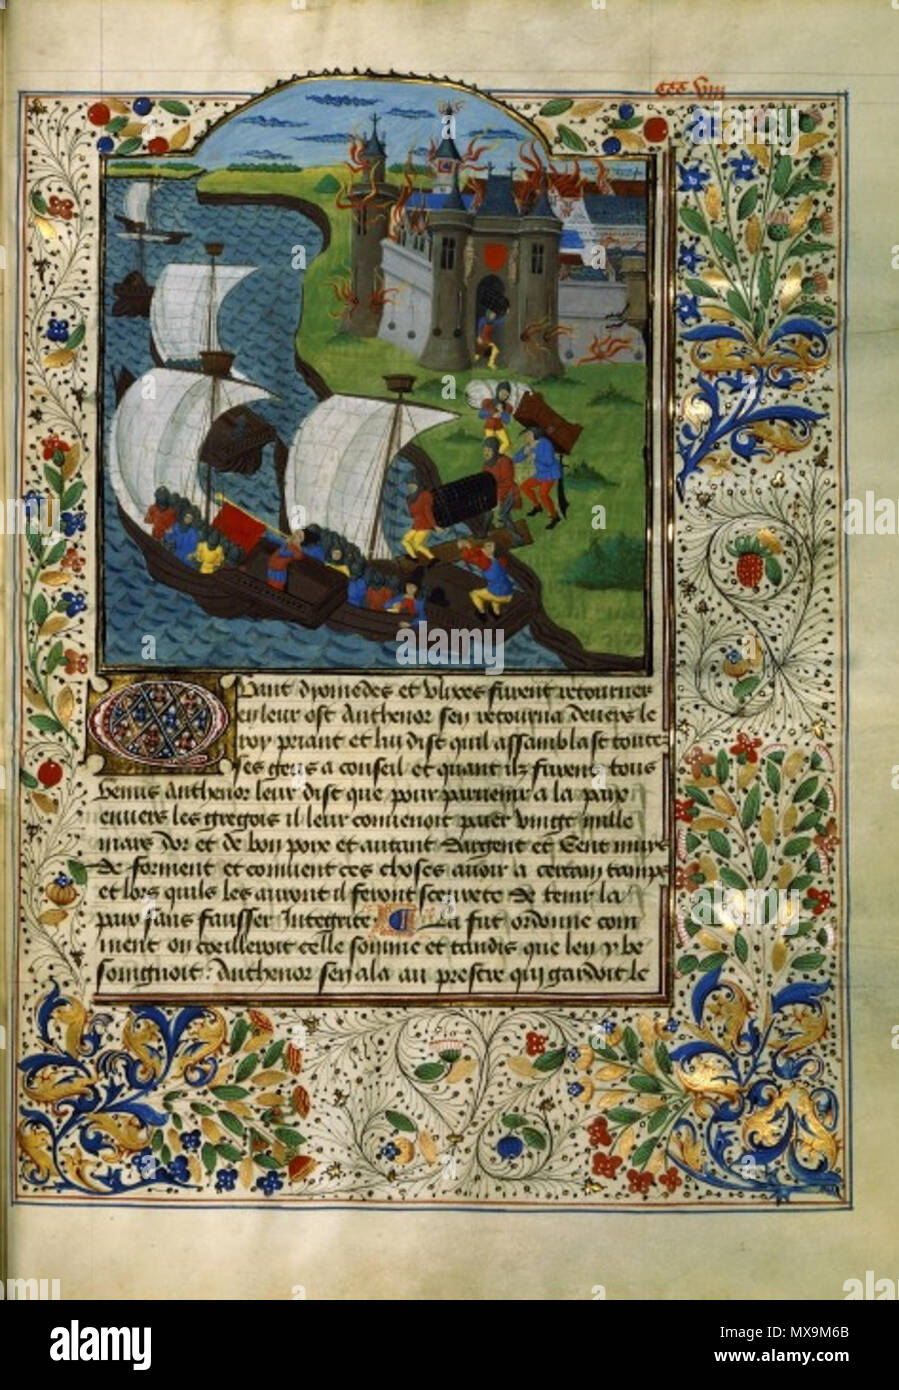 CCC VIII
Quant dyomedes et Vlixes furent retournez
en leur ost Anthenor sen retourna deuers le
roy priant et lui dist quil assamblast toutes
ses gens a conseil et quant ilz furent tous
Venus Anthenor leur dist que pour paruenir a la paix
enuers les gregois il leur conuenoit paier vingt mille
mars dor et de bon poix et autant dargent et Cent muys
de forment et conuient ces choses auoir a certain tamps
et lors quils les auront il feront sceurete de tenir la
paix sans fausser Integrite La fut ordonne com
ment on coeilleroit celle somme et tandis que len y be
soingnoit: Anthenor sen ala au prestre qui gardoit le
alamy stock photo
MX9M6B
www.alamy.com